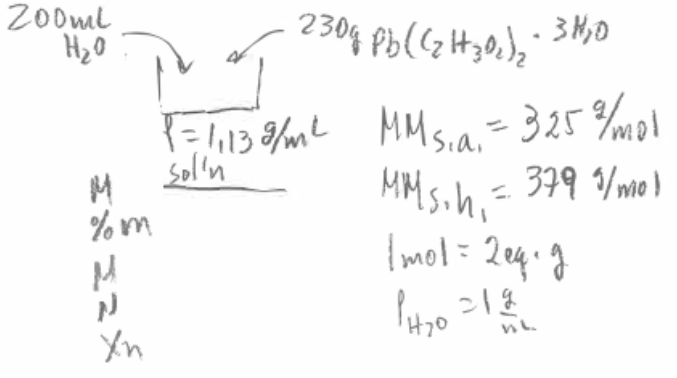 200mL
H₂O
230g Pb(C₂H₃O₂)₂ · 3H₂O
ρ = 1,13 g/mL
sol'n
MM s.a. = 325 g/mol
MM s.h. = 379 g/mol
1mol = 2eq·g
ρ H₂O = 1 g/mL
M
%m
M
N
Xn